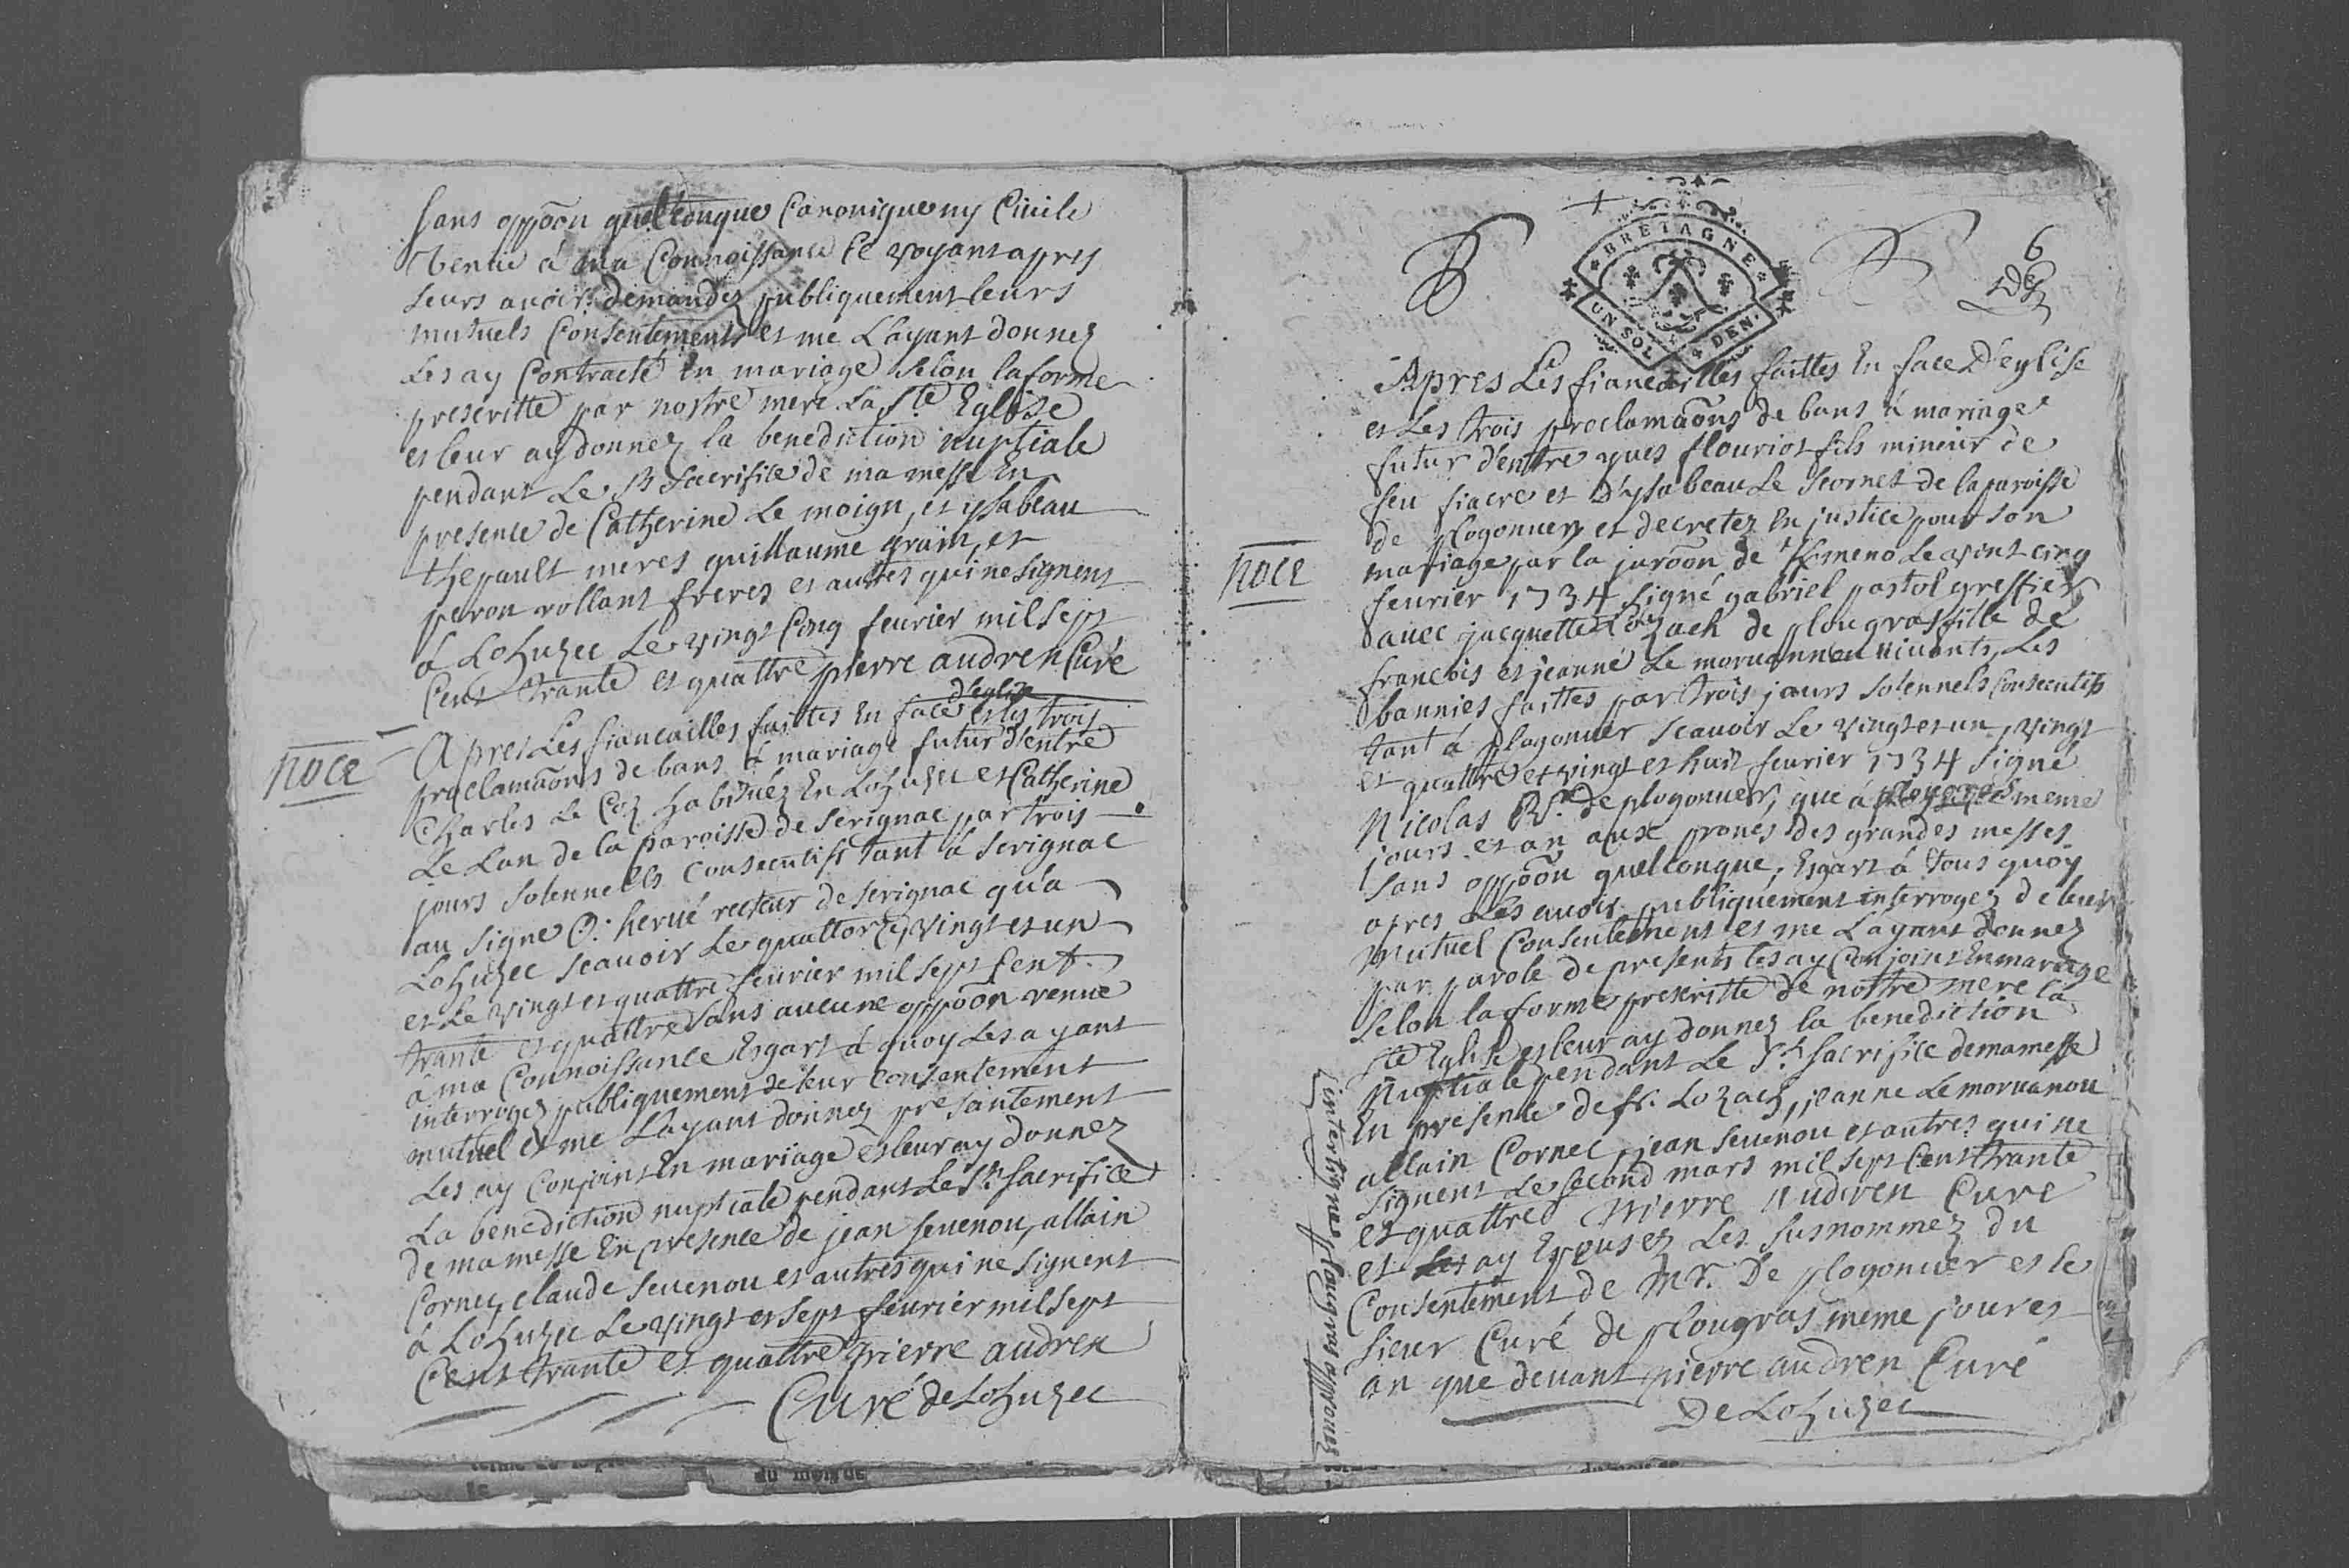 sans oppõon quelconque Canonique ny Ciuile
Venue à ma Connoissance Ce voyant apres
leurs auoir demandez publiquement leurs
mutuels Consentements et me L'ayant donnez
Les ay Contracté En mariage selon la forme
prescritte par nostre mere La Ste Eglise
et leur ay donnez la benediction nuptiale
pendant Le St Sacrifice de ma messe En
presence de Catherine Le moign, et ysabeau
thepault meres guillaume grain, et
peron rollant freres et autres qui ne signent
à Lohuzec Le vingt Cinq feurier mil sept
Cent trante et quattre pierre audren Curé
d'eglise
noce
Apres Les fiancailles faittes En face et les trois
proclamaõns de bans à mariage futur d'entre
Charles Le Coz habituez En Lohuzec et Catherine
Le Lan de la paroisse de serignac par trois
jours solennells Consecutifs tant à serignac
au signe O: herué recteur de serignac qu'a
Lohuzec scauoir Le quattorze, vingt et un
et Le vingt et quattre feurier mil sept Cent
trante et quattre sans aucune oppõon venue
à ma Connoissance Esgart à quoy Les ayant
interrogez publiquement de leur Consentement
mutuel et me L'ayant donnez presantement
Les ay Conjoint En mariage et leur ay donnez
La benediction nuptiale pendant Le St Sacrifice
de ma messe En presence de jean seuenou, allain
Cornec, claude seuenou et autres qui ne signent
à Lohuzec Le vingt et sept feurier mil sept
Cent trante et quattre pierre audren
Curé de Lohuzec
6
BRETAGNE
UN SOL 4 DEN.
Apres Les fiancailles faittes En face D'eglise
et Les trois proclamaõns de bans à mariage
futur d'entre yues flouriot fils mineur de
feu fiacre et d'ysabeau Le scornet de la paroisse
de plogonuer et decretez En justice pour son
noce
mariage par la juroõn de Le vint cinq
feurier 1734 signé gabriel pastol greffier
auec jacquette Lozach de plougras fille de
francois et jeanne Le moruannou viuants, Les
bannies faittes par trois jours solennels Consecutifs
tant à plogonuer scauoir Le vingt et un, vingt
et quattre et vingt et huit feurier 1734 signé
Nicolas Rr de plogonuer, que à plougras meme
jours et an aux prones des grandes messes
sans oppõon quelconque, Esgart à tous quoy
apres Les auoir publiquement interrogez de leur
mutuel Consentement et me L'ayant donnez
par parole de presents les ay Conjoint En mariage
selon la forme prescritte de nostre mere la
Ste Eglise et leur ay donnez la benediction
Nuptiale pendant Le St sacrifice de ma messe
En presence de fr. Lozach, jeanne Le moruanou
allain Cornec, jean seuenou et autres qui ne
signent Le second mars mil sept Cent trante
et quattre Pierre Audren Cure
et les ay Epousez Les susnommez du
Consentement de Mr. De plogonuer et le
sieur Curé de plougras meme jour et
an que deuant pierre audren Curé
De Lohuzec
interligne plougras approuuez